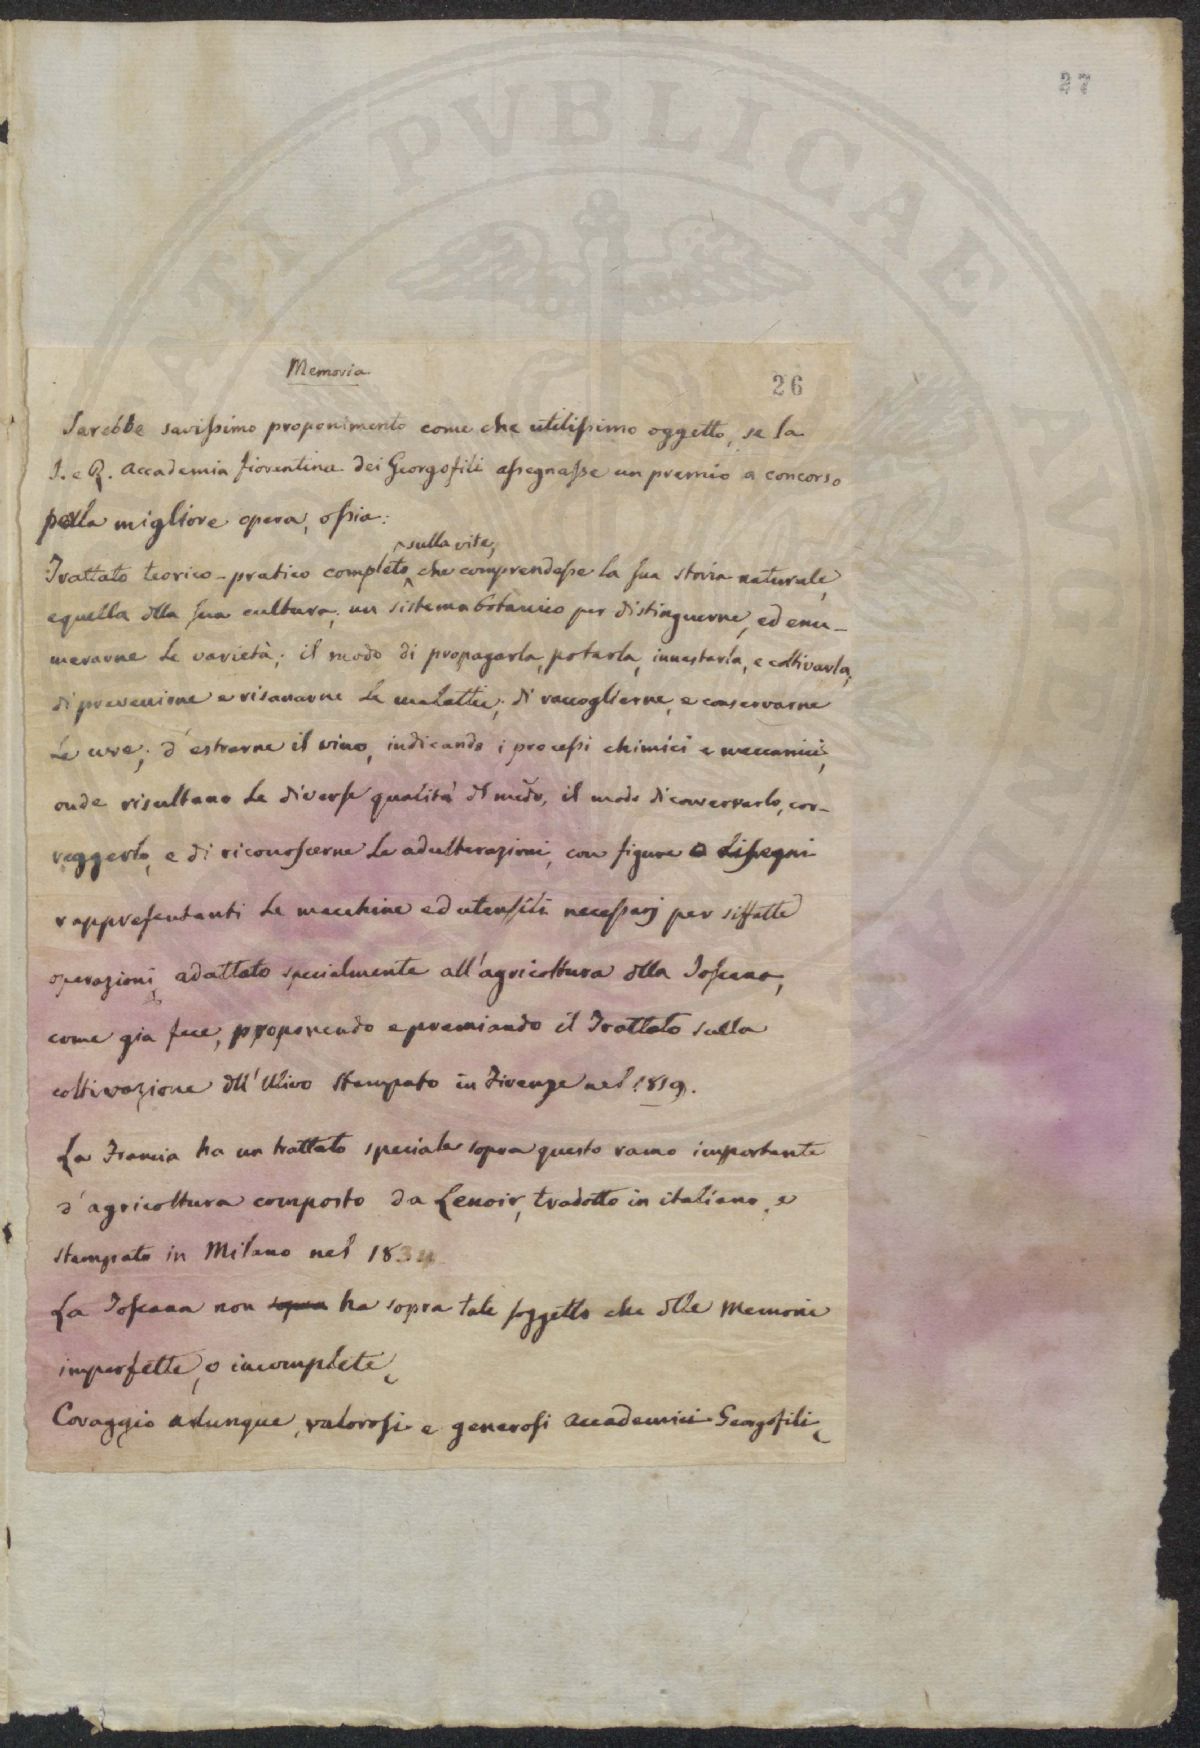 27
Memoria
26
Sarebbe savissimo proponimento come che utilissimo oggetto, se la
I. e R. Accademia fiorentina dei Georgofili assegnasse un premio a concorso
pella migliore opera, ossia:
sulla vite,
Trattato teorico-pratico completo che comprendesse la sua storia naturale,
e quella dlla sua cultura; un sistema botanico per distinguerne, ed enu-
merarne le varietà; il modo di propagarla, potarla, innestarla, e coltivarla,
di prevenirne e risanarne le malattie; di raccoglierne, e conservarne
le uve; d'estrarne il vino, indicando i processi chimici e meccanici,
onde risultano le diverse qualità dl medo, il modo di conservarlo, cor-
reggerlo, e di riconoscerne le adulterazioni, con figure o disegni
rappresentanti le macchine ed utensili necessarj per siffatte
operazioni, adattato specialmente all'agricoltura dlla Toscana,
come già fece, proponendo e premiando il Trattato sulla
coltivazione dll'Ulivo stampato in Firenze nel 1819.
La Francia ha un trattato speciale sopra questo ramo importante
d'agricoltura composto da Lenoir, tradotto in italiano, e
stampato in Milano nel 183
La Toscana non sopra ha sopra tale soggetto che dlle Memorie
imperfette, o incomplete.
Coraggio adunque, valorosi e generosi Accademici Georgofili.
PVBLICAE